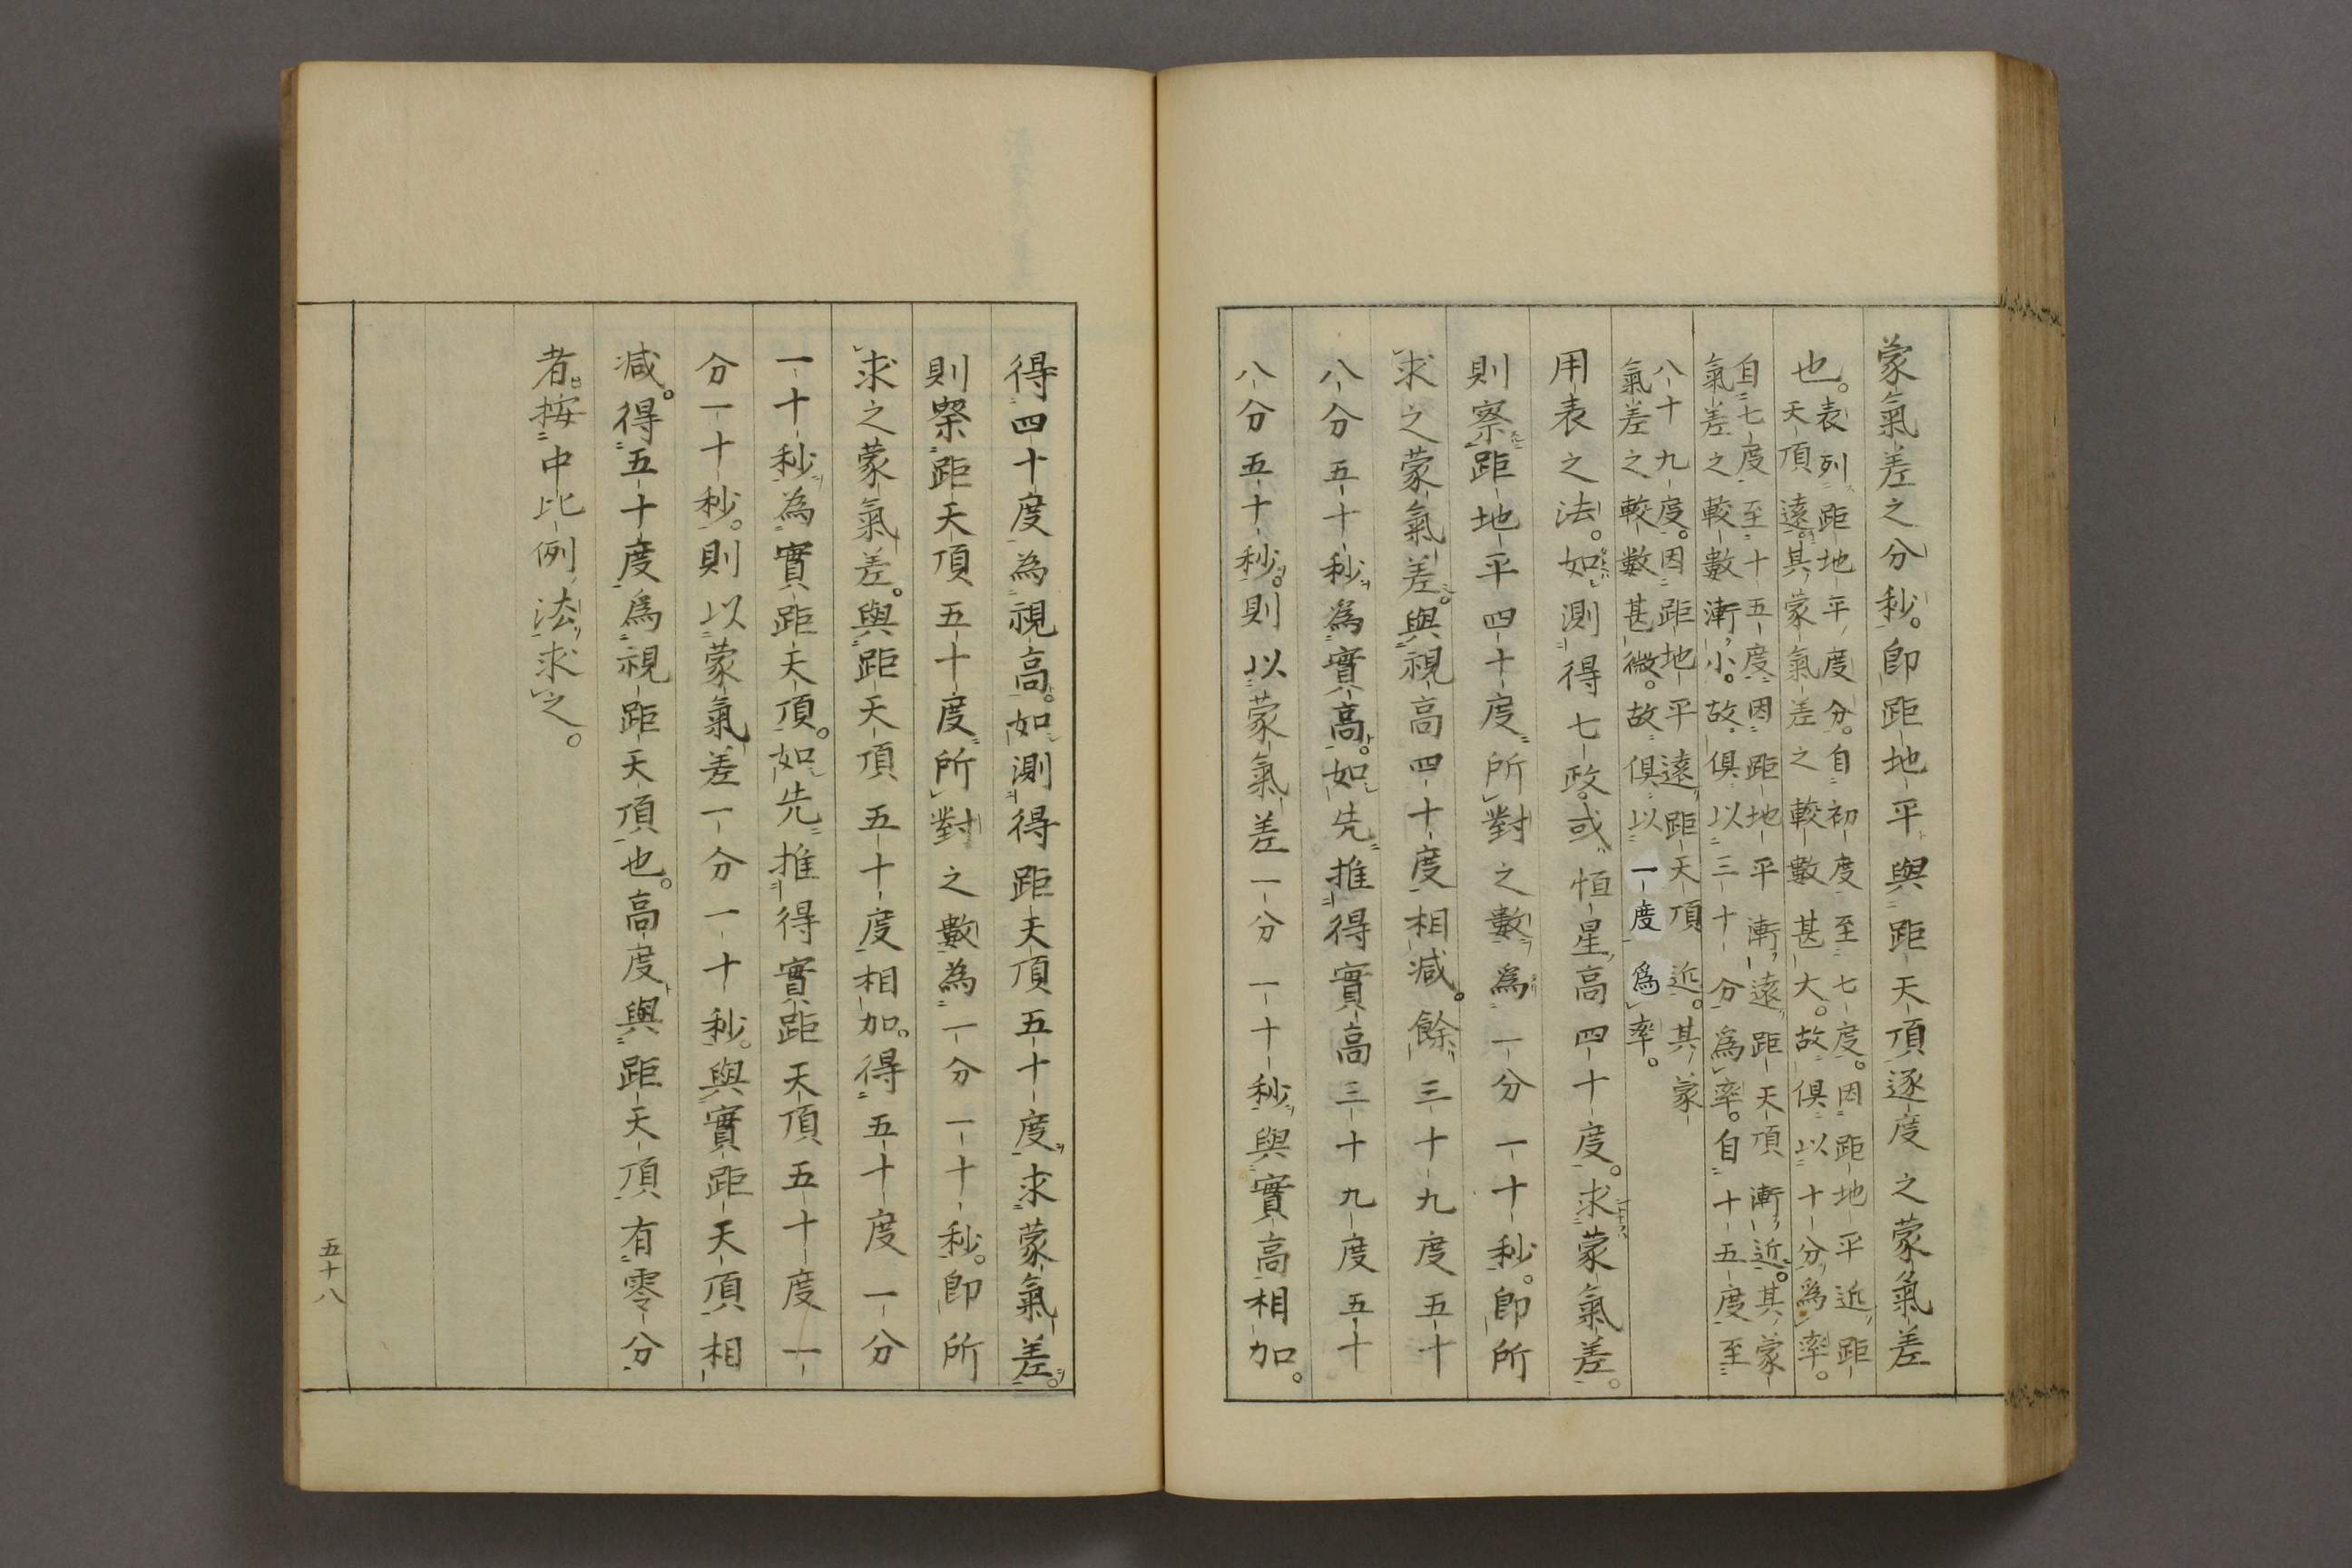 蒙氣差之分秒。卽距地平與距天頂逐度之蒙氣差
也。
表列距地平度分。自初度至七度。因距地平近距
天頂遠。其蒙氣差之較數甚大。故俱以十分爲率。
自七度至十五度因距地平漸遠距天頂漸近。其蒙
氣差之較數漸小。故俱以三十分爲率。自十五度至
八十九度。因距地平遠距天頂近。其蒙
氣差之較數甚微。故俱以一度爲率。
用表之法。如測得七政或恒星高四十度。求蒙氣差。
則察距地平四十度所對之數爲一分一十秒。卽所
求之蒙氣差。與視高四十度相減。餘三十九度五十
八分五十秒為實高。如先推得實高三十九度五十
八分五十秒。則以蒙氣差一分一十秒與實高相加。
得四十度為視高。如測得距天頂五十度求蒙氣差。
則察距天頂五十度所對之數為一分一十秒。卽所
求之蒙氣差。與距天頂五十度相加。得五十度一分
一十秒為實距天頂。如先推得實距天頂五十度一
分一十秒。則以蒙氣差一分一十秒。與實距天頂相
减。得五十度爲視距天頂也。高度與距天頂有零分
者。按中比例法求之。
五十八